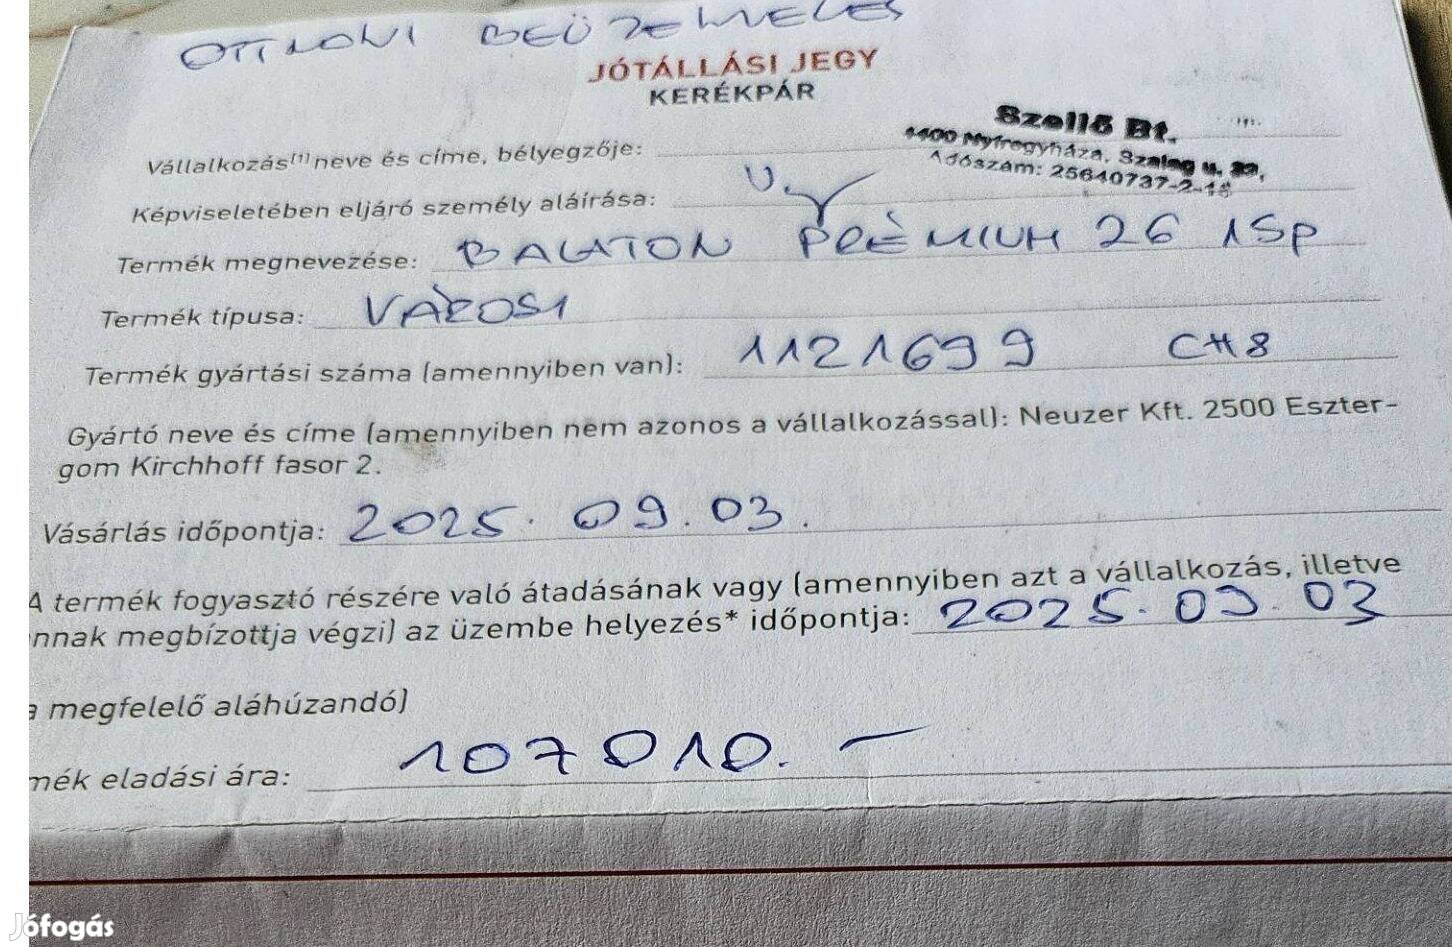 OTTHONI BEÜZEMELÉS
JÓTÁLLÁSI JEGY
KERÉKPÁR
Szellő Bt.
4400 Nyíregyháza, Szalag u.
Adószám: 25640737-2-15
Vállalkozás[1] neve és címe, bélyegzője:
Képviseletében eljáró személy aláírása:
Termék megnevezése: BALATON PRÉMIUM 26 1SP
Termék típusa: VÁROSI
Termék gyártási száma (amennyiben van): 1121699 CH8
Gyártó neve és címe (amennyiben nem azonos a vállalkozással): Neuzer Kft. 2500 Eszter-
gom Kirchhoff fasor 2.
Vásárlás időpontja: 2025. 09. 03.
A termék fogyasztó részére való átadásának vagy (amennyiben azt a vállalkozás, illetve
nnak megbízottja végzi) az üzembe helyezés* időpontja: 2025. 09. 03
a megfelelő aláhúzandó)
mék eladási ára: 107010. -
Jófogás